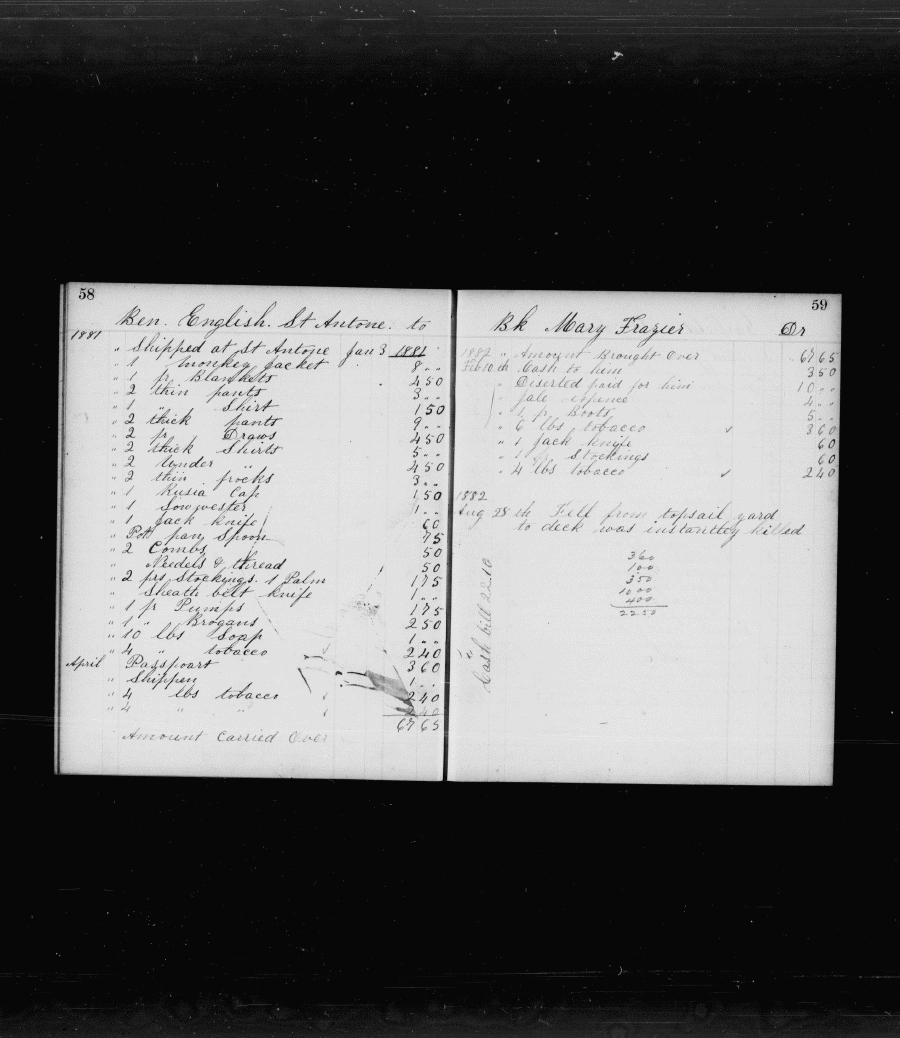 58
Ben. English. St Antone. to
1881
" Shipped at St Antone Jan 3 1881
" 1 Monkey Jacket 8 " "
" 1 pr Blankets 4 50
" 2 thin pants 3 " "
" 1 " Shirt 1 50
" 2 thick pants 9 " "
" 2 pr Draws 4 50
" 2 thick Shirts 5 " "
" 2 Under " 4 50
" 2 thin frocks 3 " "
" 1 Rusia Cap 1 50
" 1 Sowwester 1 " "
" 1 Jack knife 60
" Pott pan Spoon 75
" 2 Combs 50
" Needels & thread 50
" 2 prs Stockings. 1 Palm 1 75
" Sheath belt knife 1 " "
" 1 pr Pumps 1 75
" 1 " Brogans 2 50
" 10 lbs Soap 1 " "
" 4 " tobacco 2 40
April " Passpoart 3 60
" Shippen 1 " "
" 4 lbs tobacco 2 40
" 4 " " 2 40
67 65
Amount Carried Over
59
Bk Mary Frazier Dr
1882 " Amount Brought Over 67 65
Feb 10th Cash to him 3 50
" Deserted paid for him 10 " "
" Jale expence 4 " "
" 1 pr Boots 5 " "
" 6 lbs tobacco 3 60
" 1 Jack knife 60
" 1 pr Stockings 60
" 4 lbs tobacco 2 40
1882
Aug 28th Fell from topsail yard
to deck was instantley killed
360
100
350
1000
400
2250
" Cash bill 22.10